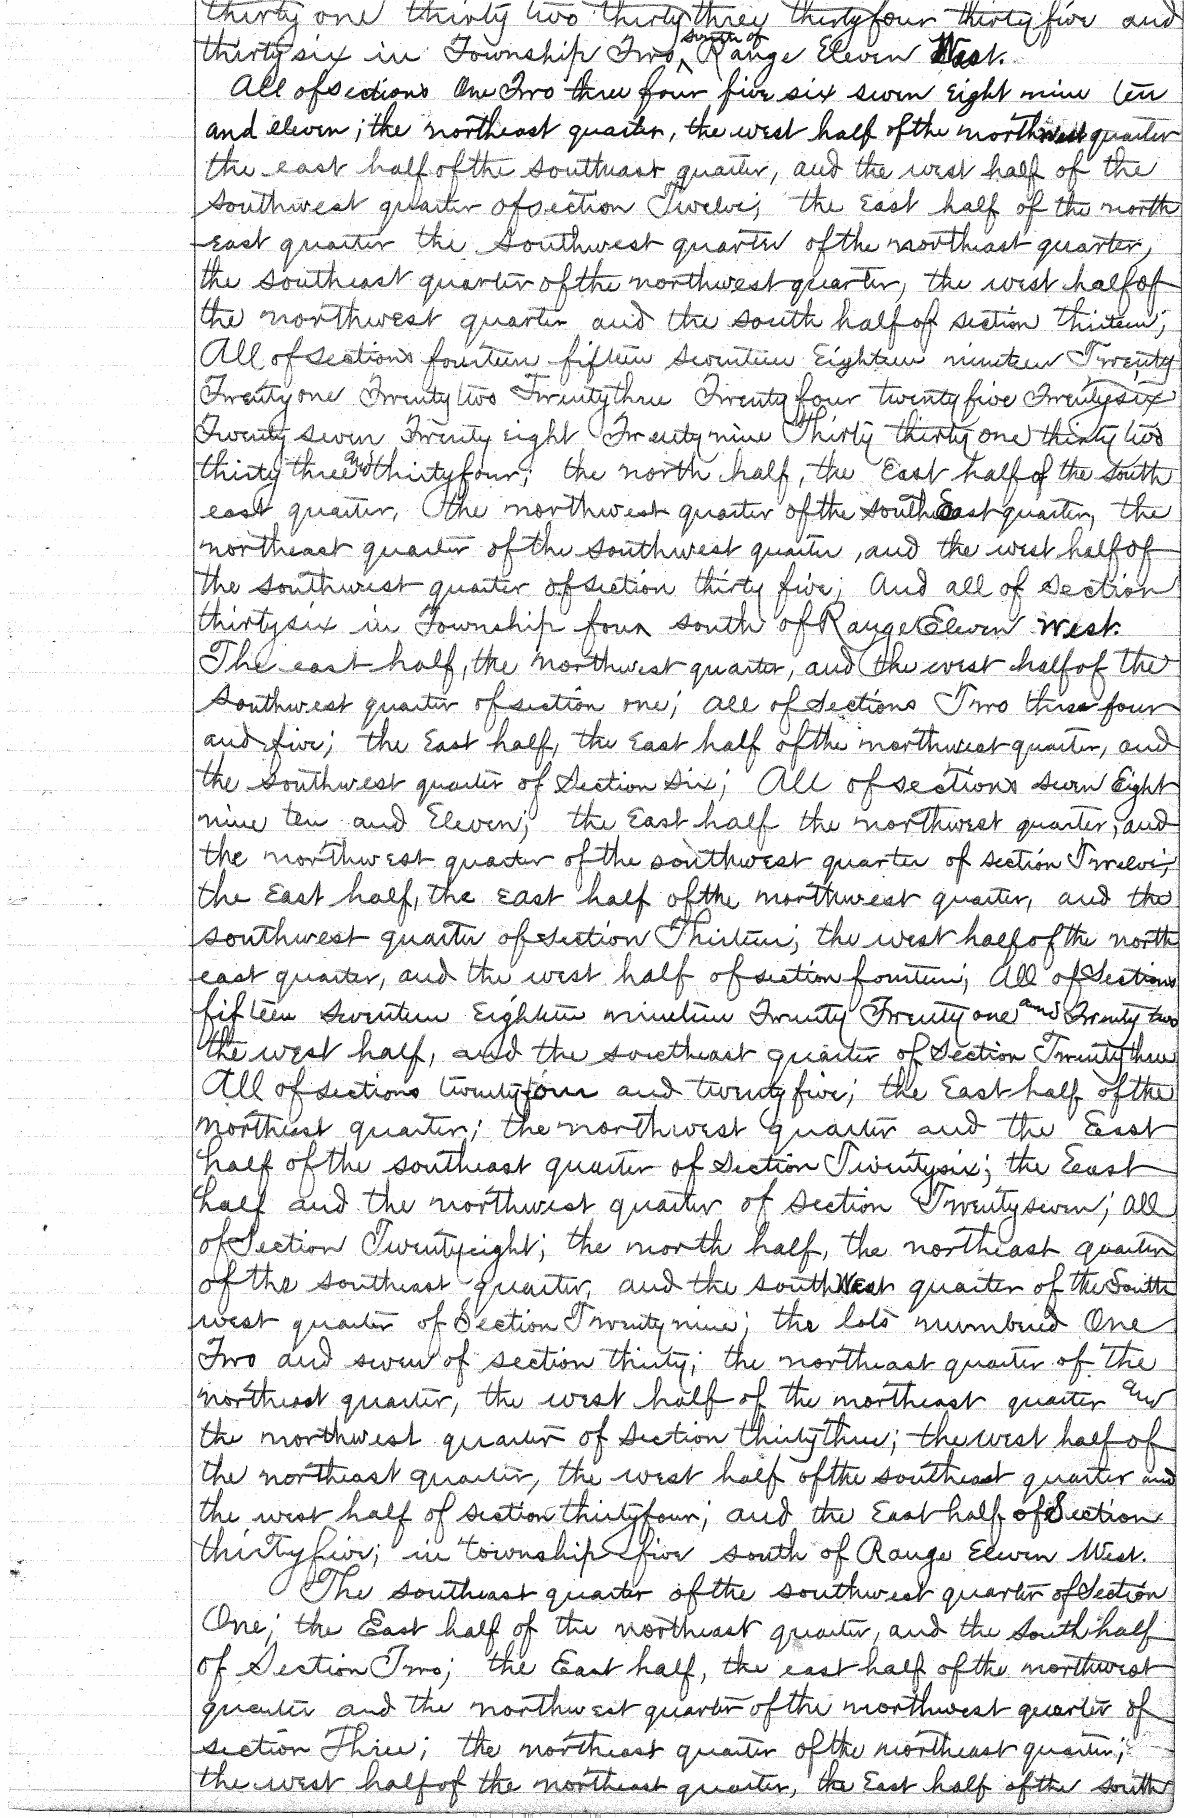 thirty one thirty two thirty three thirty four thirty five and
thirty six in Township Two south of Range Eleven West.
All of sections One Two three four five six seven Eight nine ten
and eleven; the northeast quarter, the west half of the northwest quarter
the east half of the southeast quarter, and the west half of the
southwest quarter of section Twelve; the East half of the north
east quarter the southwest quarter of the northeast quarter,
the southeast quarter of the northwest quarter, the west half of
the northwest quarter and the south half of section thirteen;
All of sections fourteen fifteen seventeen Eighteen nineteen Twenty
Twenty one Twenty two Twenty three Twenty four twenty five Twenty six
Twenty seven Twenty eight Twenty nine Thirty thirty one thirty two
thirty three and thirty four; the north half, the East half of the south
east quarter, the northwest quarter of the southEast quarter, the
northeast quarter of the southwest quarter, and the west half of
the southwest quarter of section thirty five; And all of section
thirty six in Township four south of Range Eleven West.
The east half, the northwest quarter, and the west half of the
southwest quarter of section one; all of sections Two three four
and five; the East half, the East half of the northwest quarter, and
the southwest quarter of Section six; All of sections seven Eight
nine ten and Eleven; the East half the northwest quarter, and
the northwest quarter of the southwest quarter of section Twelve;
the East half, the east half of the northwest quarter, and the
southwest quarter of section Thirteen; the west half of the north
east quarter, and the west half of section fourteen; All of Sections
fifteen seventeen Eighteen nineteen Twenty Twenty one and Twenty two
the west half, and the southeast quarter of Section Twenty three
All of sections twenty four and twenty five; the East half of the
northeast quarter; the northwest quarter and the East
half of the southeast quarter of Section Twenty six; the East
half and the northwest quarter of section Twenty seven; all
of Section Twenty eight; the north half, the northeast quarter
of the southeast quarter, and the southWest quarter of the South
west quarter of Section Twenty nine; the lots numbered One
Two and seven of section thirty; the northeast quarter of the
northeast quarter, the west half of the northeast quarter and
the northwest quarter of section thirty three; the west half of
the northeast quarter, the west half of the southeast quarter and
the west half of section thirty four; and the East half of Section
thirty five; in township five south of Range Eleven West.
The southeast quarter of the southwest quarter of Section
One; the East half of the northeast quarter, and the south half
of Section Two; the East half, the east half of the northwest
quarter and the northwest quarter of the northwest quarter of
section Three; the northeast quarter of the northeast quarter;
the west half of the northeast quarter, the East half of the south